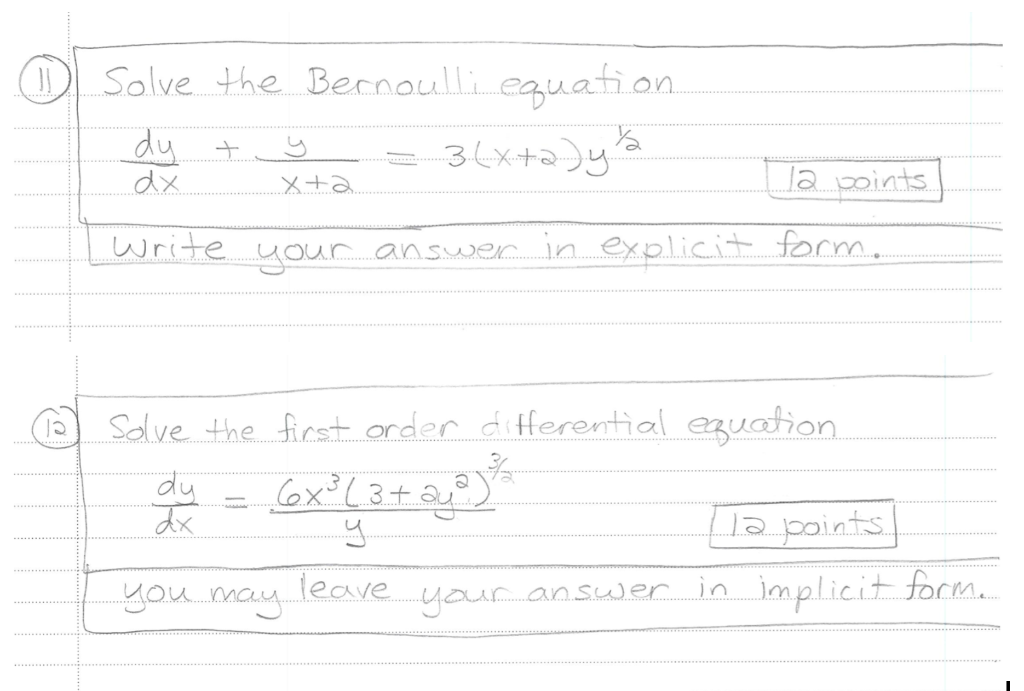 11 Solve the Bernoulli equation
dy/dx + y/(x+2) = 3(x+2)y^(1/2)
12 points
Write your answer in explicit form.
12 Solve the first order differential equation
dy/dx = 6x³(3+2y²)^(3/2)/y
12 points
you may leave your answer in implicit form.